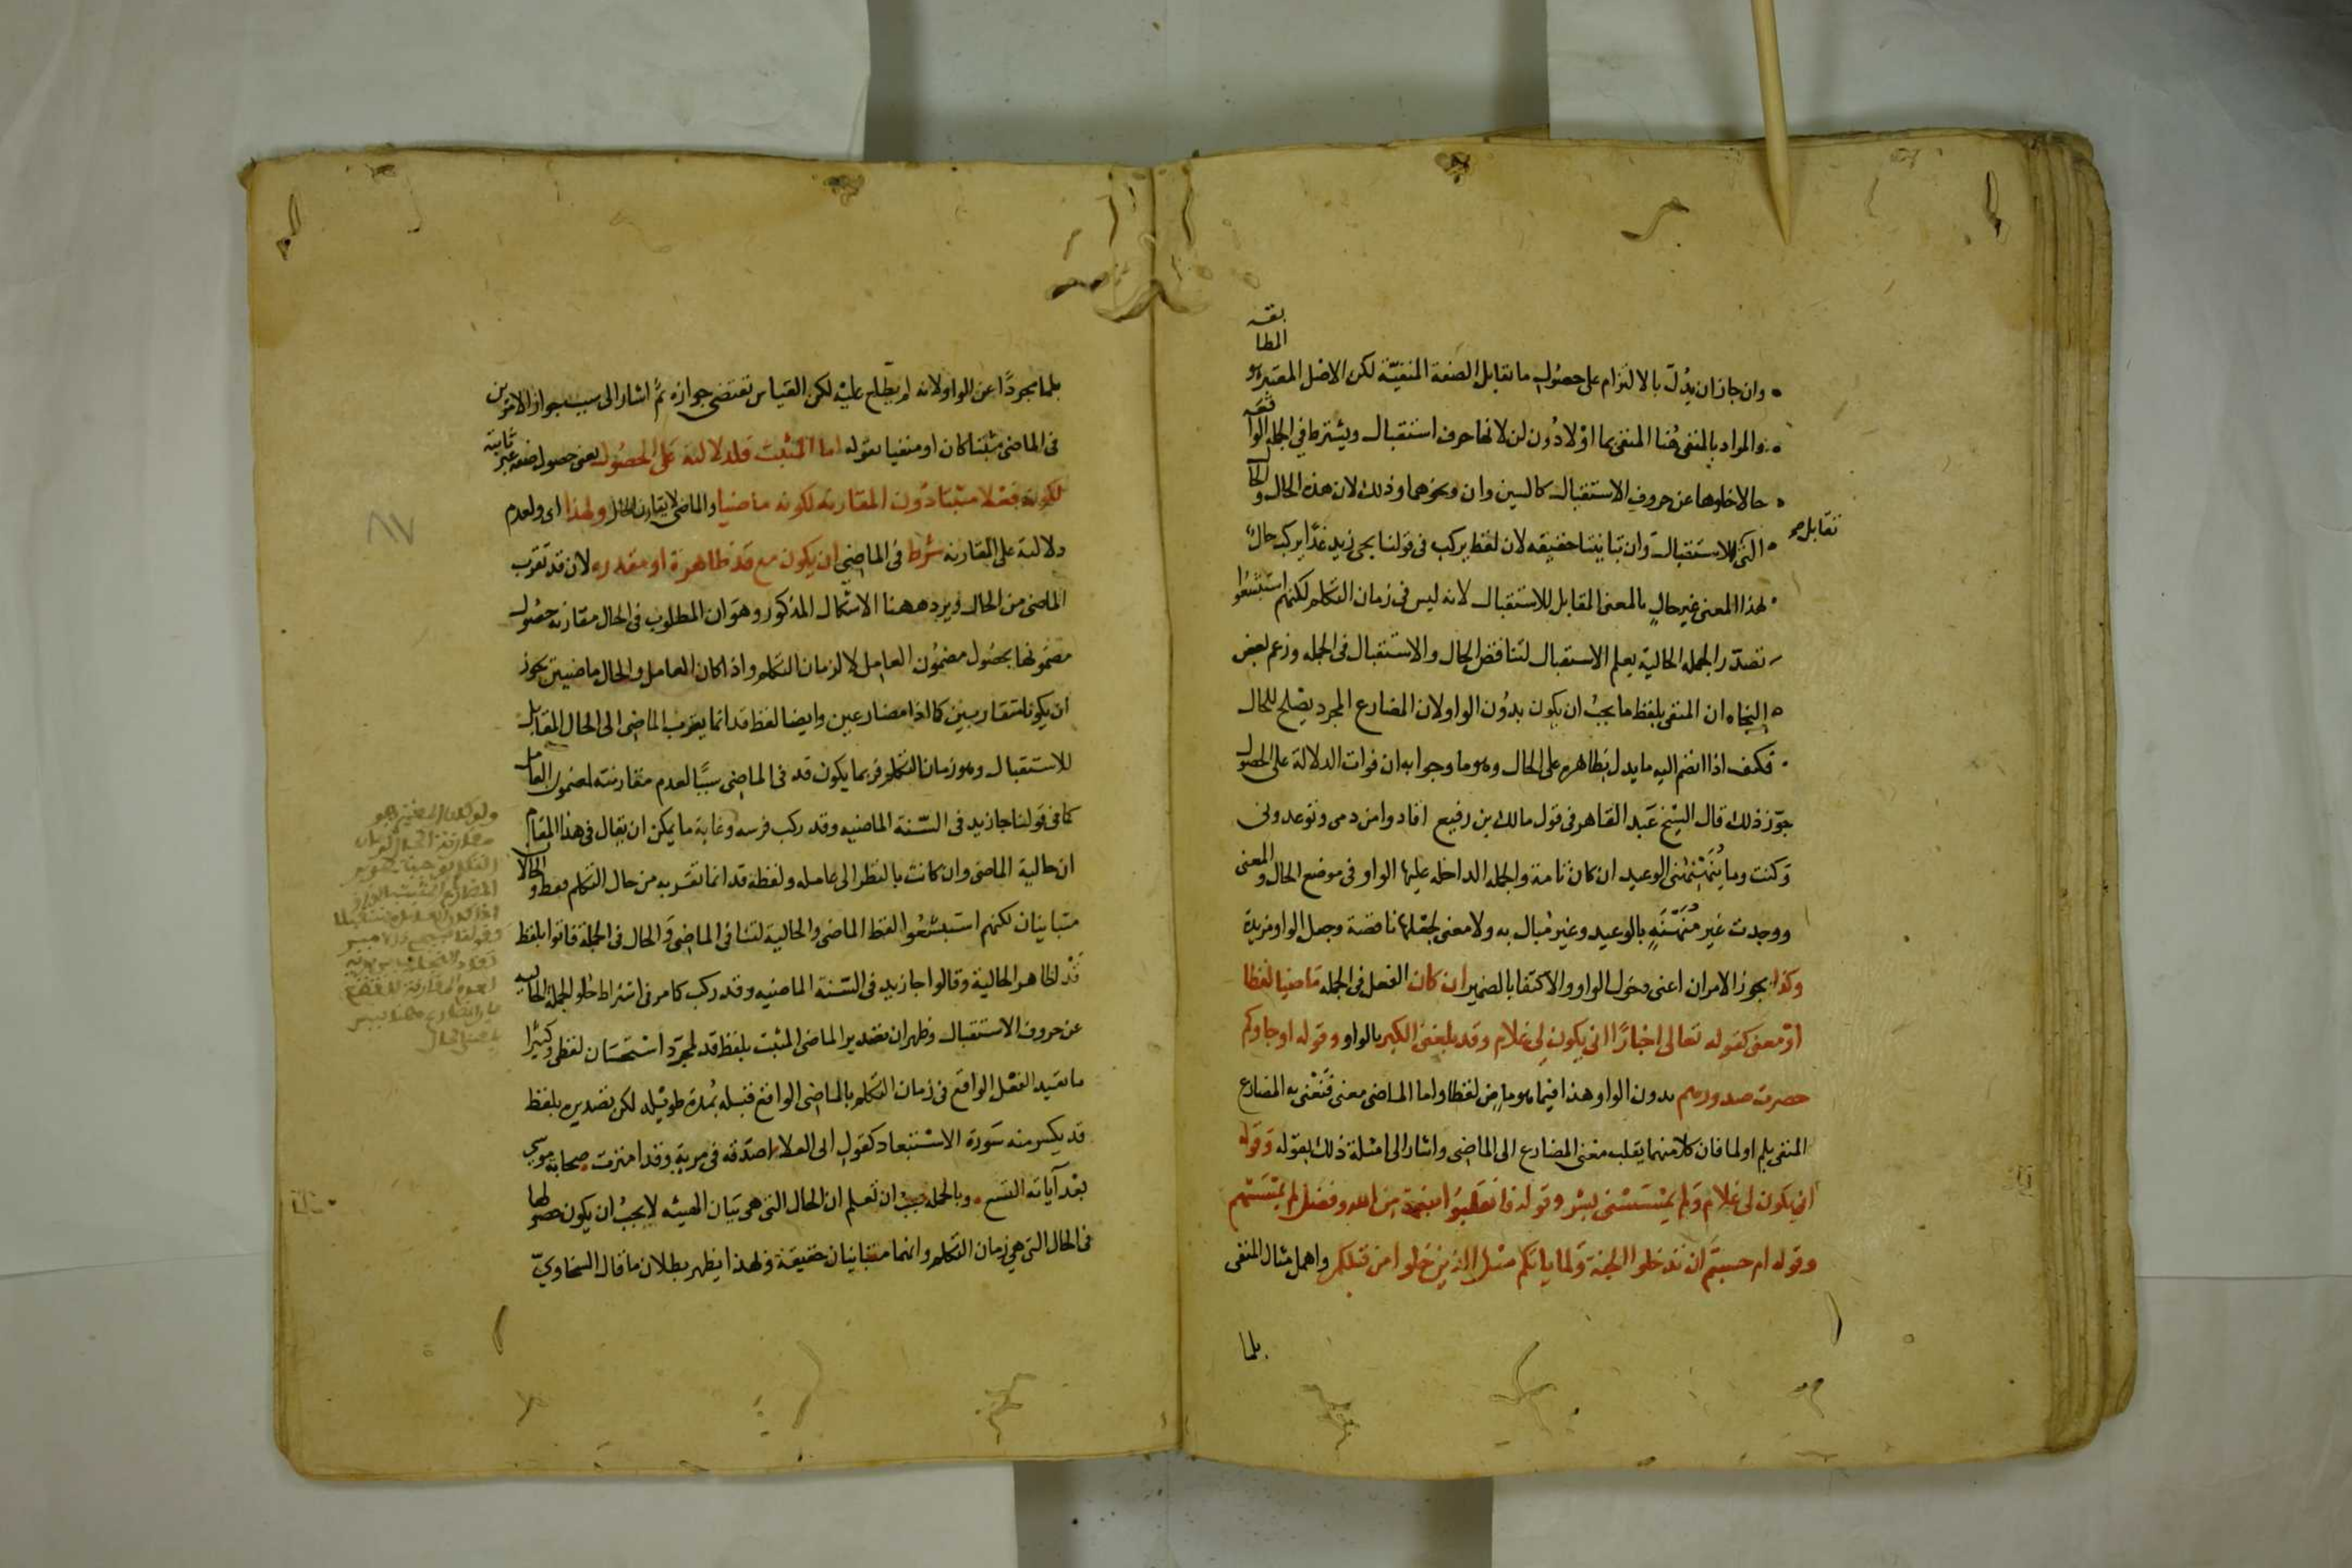 وان جاز ان يدلّ بالالتزام على حصول ما تقابل الصفة المنفيّة لكن الاصل المعتبر هو المطابقه
والمراد بالمنفى هُنا المنفى بما اوْ لا دُون لن لانها حرف استقبال ويشترط فى الجملة الواقعه
حالا خلوها عن حروف الاستقبال كالسين ولن ونحوهما وذلك لان هذه الحال والحال
التى تقابل الاستقبال وان تباينتا حقيقه لان لفظ يركب فى قولنا يجى زيد غدًا يركب حالٌ
لهذا المعنى غير حالٍ بالمعنى المقابل للاستقبال لانه ليس فى زمان التكلم لكنهم استبشعوا
تصدّر الجمله الحالية بعلم الاستقبال لتناقض الحال والاستقبال فى الجمله وزعم بعض
النحاه ان المنفى بلفظ ما يجبُ ان يكون بدوُن الواو لان المضارع المجرد يصْلح للحال
فكيف اذا انضم اليه ما يدل بظاهره على الحال وهو ما وجوابه ان فوات الدلالة على الحصول
جوّز ذلك قال الشيخ عَبد القاهر فى قول مالك بن رفيع اقادوا من دمى وتوعدونى
وَكنت وما يُنَهْنِهُنى الوعيد ان كان تامة والجمله الداخله عليها الواو فى موضع الحال والمعنى
ووجدت غير مُنَهْنَهٍ بالوعيد وغير مُبال به ولا معنى لجعْلها ناقصة وجعل الواو مزيدة
وكذا يجوز الامران اعنى دخول الواو والاكتفا بالضمير ان كان الفعل فى الجمله مَاضيا لفظا
اوْ معنى كقوله تعالى اخبارًا انى يكون لى غلام وقد بلغنى الكبر بالواو وقوله او جاوكم
حصرت صدورهم بدون الواو وهذا فيما هو ماضٍ لفظا واما الماضى معنى فَنَعْنى به المضارع
المنفى بلم او لما فان كلا منهما يقلب معْنى المضارع الى الماضى واشار الى امثلة ذلك بقوله وَقوله
انى يكون لى غلام وَلم يمْسَسْنى بشر وقوله فانقلبوُا بنعمة من الله وفضل لم يمْسَسْهم
وقوله ام حسبتم ان تدخلوا الجنة وَلما ياتكم مثل الذين خلوا من قبلكم واهمل مثال المنفى
بلما
بلما مجردًا عن الواو لانه لم يطّلع عليْه لكن القيَاس تقتضى جوازه ثمَّ اشار الى سبب جواز الامرين
فى الماضى مثبَتا كان او منفيا بقوله اما المثبت فلدلالته عَلى الحصُول يعنى حصول صفة غير ثابتة
لكونه فعْلا مثبتا دُون المقارنه لكونه ماضيا والماضى لا يقارن الحال ولهذا اى ولعدم
دلالتة على المقارنه شرط فى الماضى ان يكون مع قدْ ظاهرة او مقدره لان قد تقرب
الماضى من الحال ويرد ههنا الاشكال المذكور وهوَ ان المطلوب فى الحال مقارنه حصُول
مضمونها بحصُول مضمُون العامِل لا لزمان التكلم واذا كان العامل والحال ماضيين يجوز
ان يكونا متقاربيين كما اذا مضارعين وايضا لفظ قد انما يقرب الماضى الى الحال المقابل
للاستقبال وهو زمان التكلم فربما يكون قد فى الماضى سببًا لعدم مقارنته لمضمون العامل
كما فى قولنا جا زيد فى السّنة الماضيه وقد ركب فرسه وَغاية ما يمكن ان يقال فى هذا المقام
ان حالية الماضى وان كانت بالنظر الى عامله ولفظة قد انما تقربه من حال التكلم فقط والحالان
متباينان لكنهم استبشعُوا لفظ الماضى والحالية لتنافى الماضى وَالحال فى الجملة فاتوا بلفظ
قَدْ لظاهر الحالية وقالوا جا زيد فى السّنة الماضيه وقد ركب كما مر فى اشتراط خلو الجملة الحاليه
عن حروف الاستقبال وظهر ان تصدير الماضى المثبت بلفظ قد لمجرّد استحسَان لفظى وكثيرًا
ما يقيد الفعْل الواقع فى زمان التكلم بالماضى الواقع قبله بمُدة طويْله لكن تصديره بلفظ
قد يكسر منه سَورة الاستبعاد كقول ابى العلا اصدّقه فى مريةٍ وقد امترت صحابة موسى
بعْد آياته التسع وبالجمله يجبُ ان تَعلم ان الحال التى هى بيَان الهيئه لا يجبُ ان يكون حصولها
فى الحال التى هى زمان التكلم وانهما متباينان حقيقة ولهذا يظهر بطلان ما قال السخاوىّ
٨٧